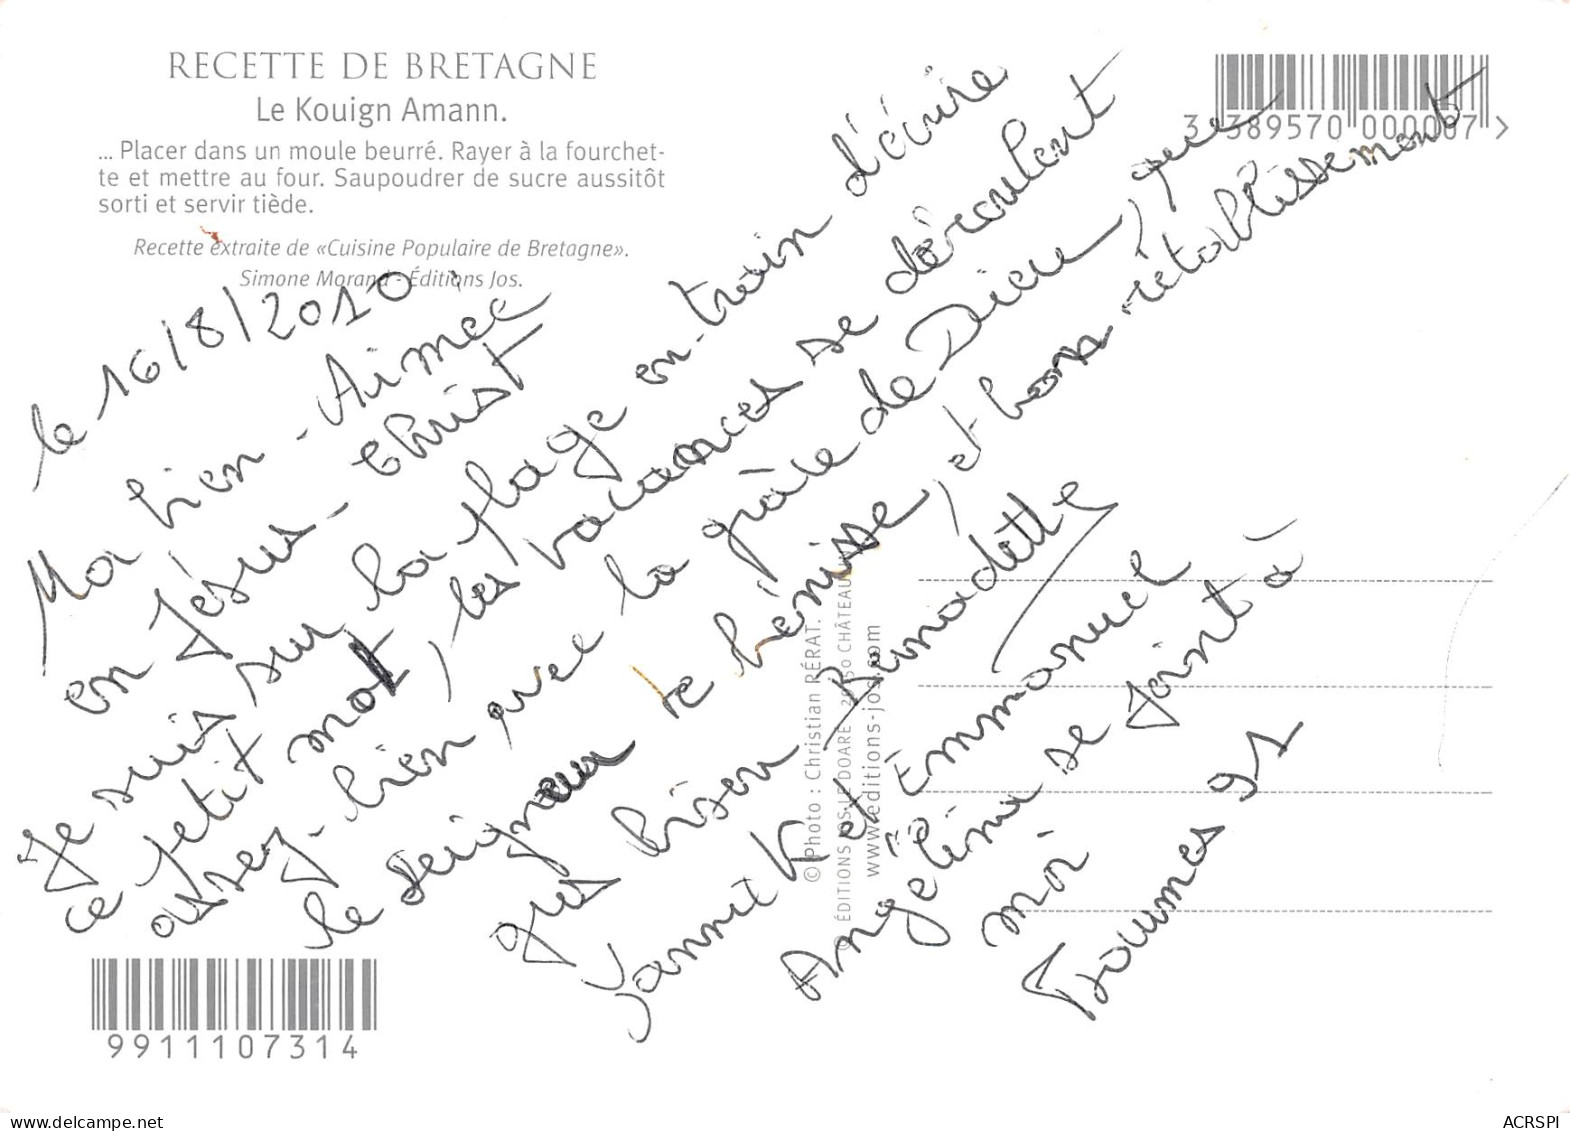 RECETTE DE BRETAGNE
Le Kouign Amann.
... Placer dans un moule beurré. Rayer à la fourchet-
te et mettre au four. Saupoudrer de sucre aussitôt
sorti et servir tiède.
Recette extraite de «Cuisine Populaire de Bretagne».
Simone Morand - Éditions Jos.
3 389570 000007 >
le 16/8/2010
Ma bien-Aimée
en Jésus-Christ
Je suis sur la plage en-train d'écrire
ce petit mot, les vacances se déroulent
assez-bien avec la grâce de Dieu, que
le seigneur te bénisse, et bon rétablissement
gros bisou Bernadette
Yannick et Emmanuel
Angélina se joint à
moi
Troumes 91
© Photo : Christian RÉRAT.
© ÉDITIONS JOS LE DOARÉ 29150 CHÂTEAU
www.editions-jos.com
9911107314
ACRSPI